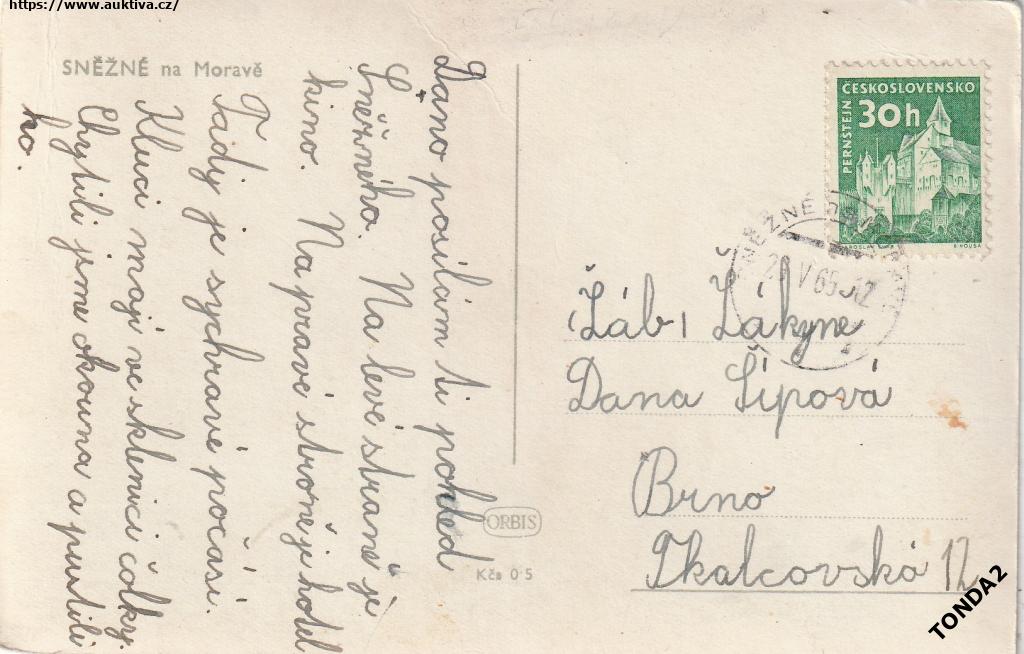 https://www.auktiva.cz/
SNĚŽNÉ na Moravě
Dano posílám ti pohled
Sněžného. Na levé straně je
kino. Na pravé straně je hotel
Tady je sychravé počasí.
Kluci mají ve sklenici čolky.
Chytili jsme okouna a pustili
ho.
ORBIS
Kčs 0·5
ČESKOSLOVENSKO
30h
PERNŠTEJN
SNĚŽNÉ
V 65-12
Žákyne
Dana Šípová
Brno
Tkalcovská 12
TONDA2